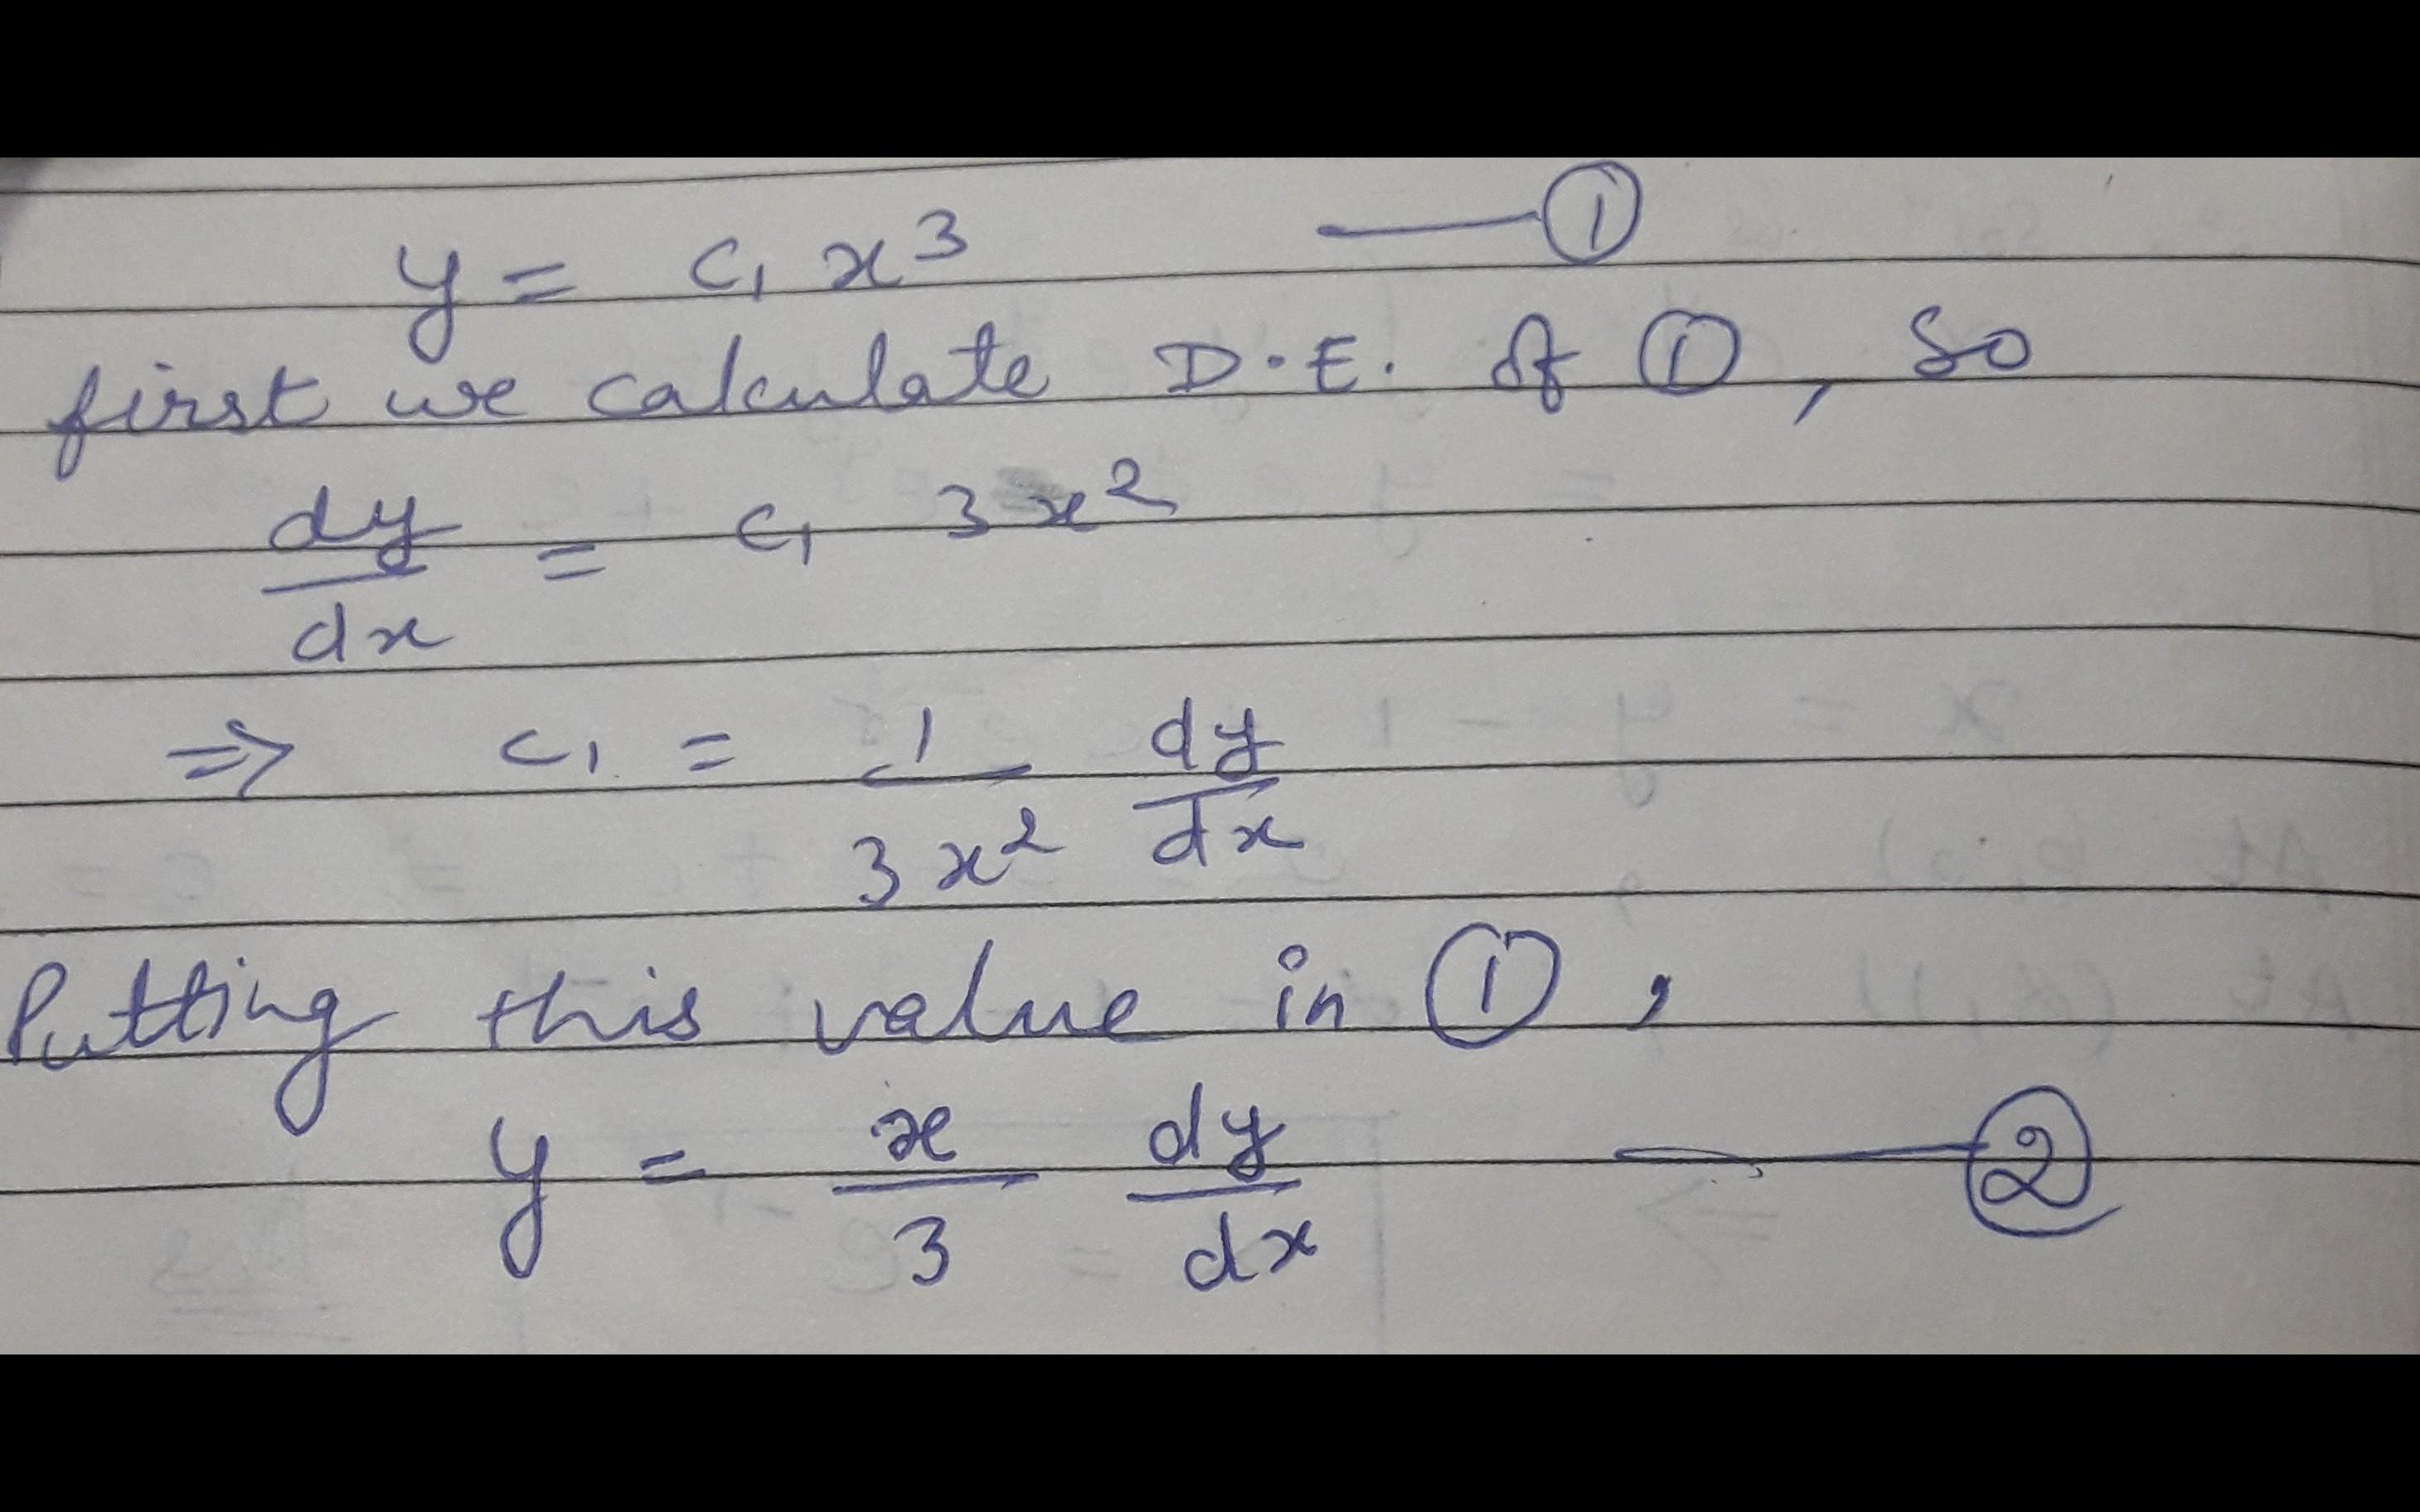 y = c₁ x³ —— ①
first we calculate D.E. of ①, So
dy/dx = c₁ 3x²
⇒ c₁ = 1/3x² dy/dx
Putting this value in ①,
y = x/3 dy/dx —— ②